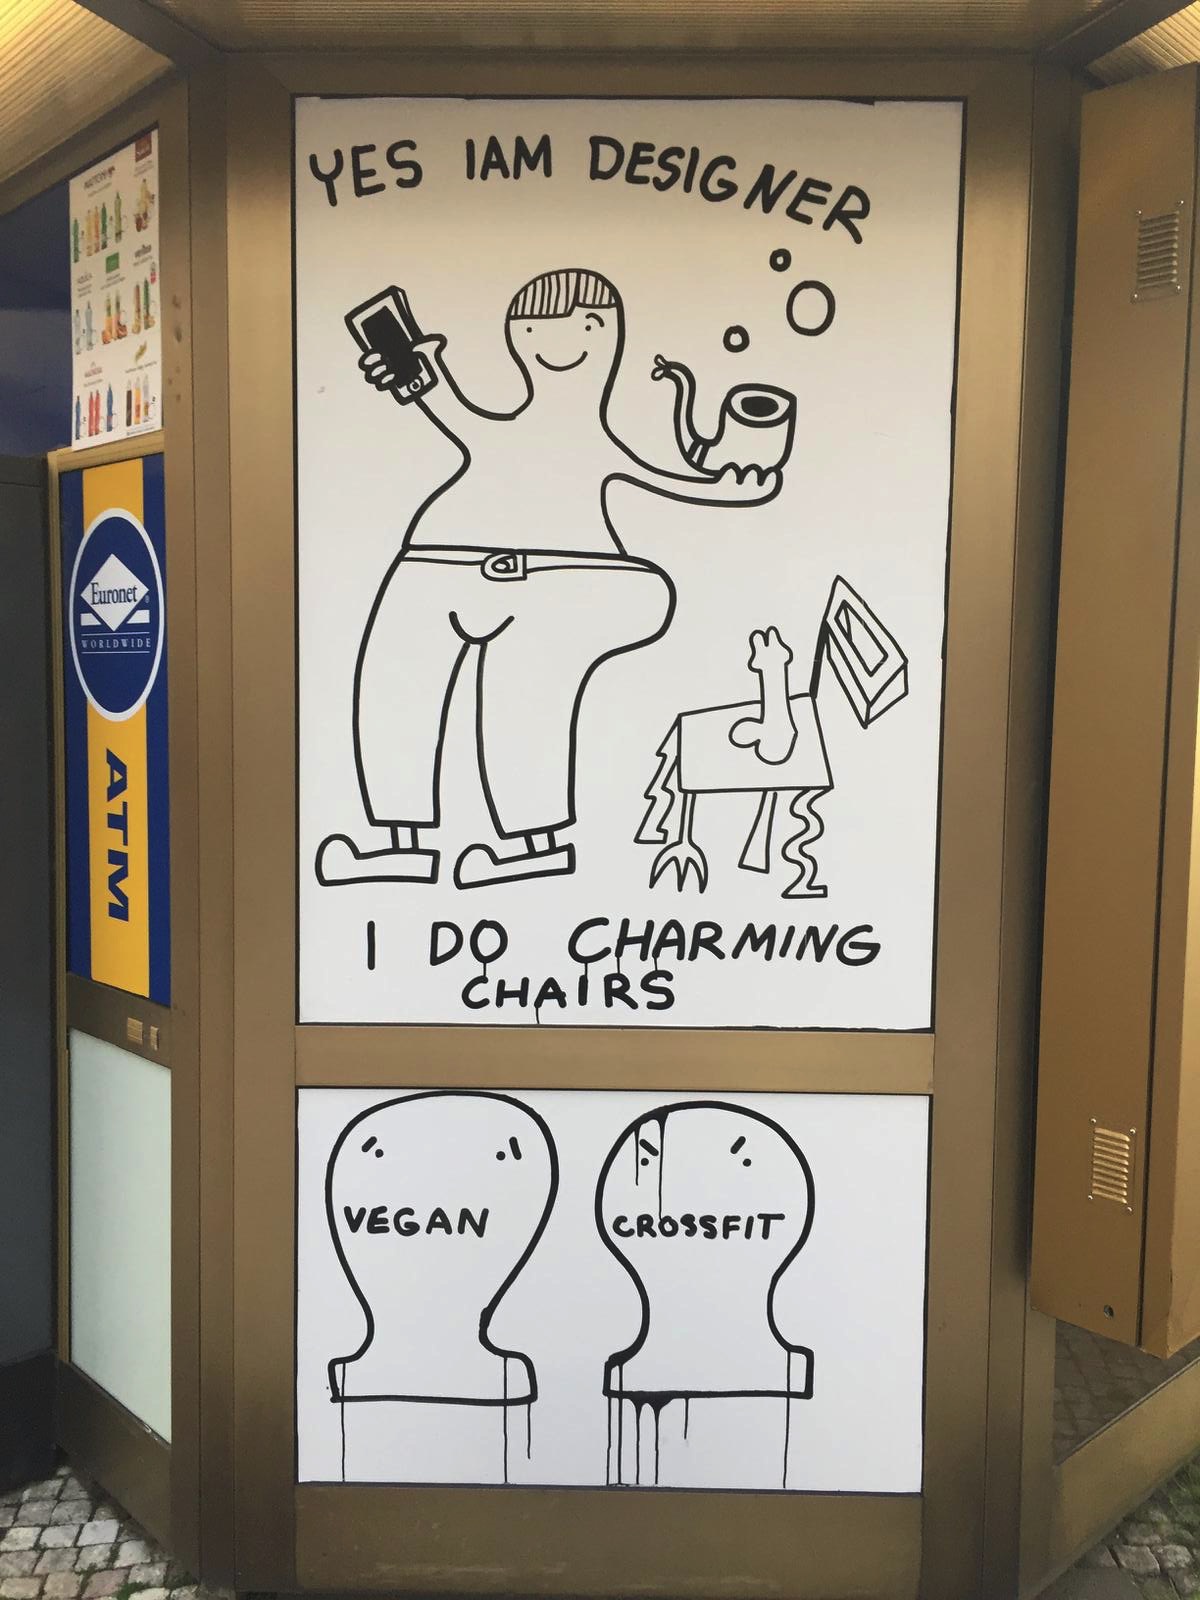 YES IAM DESIGNER
I DO CHARMING
CHAIRS
VEGAN
CROSSFIT
Euronet
WORLDWIDE
ATM